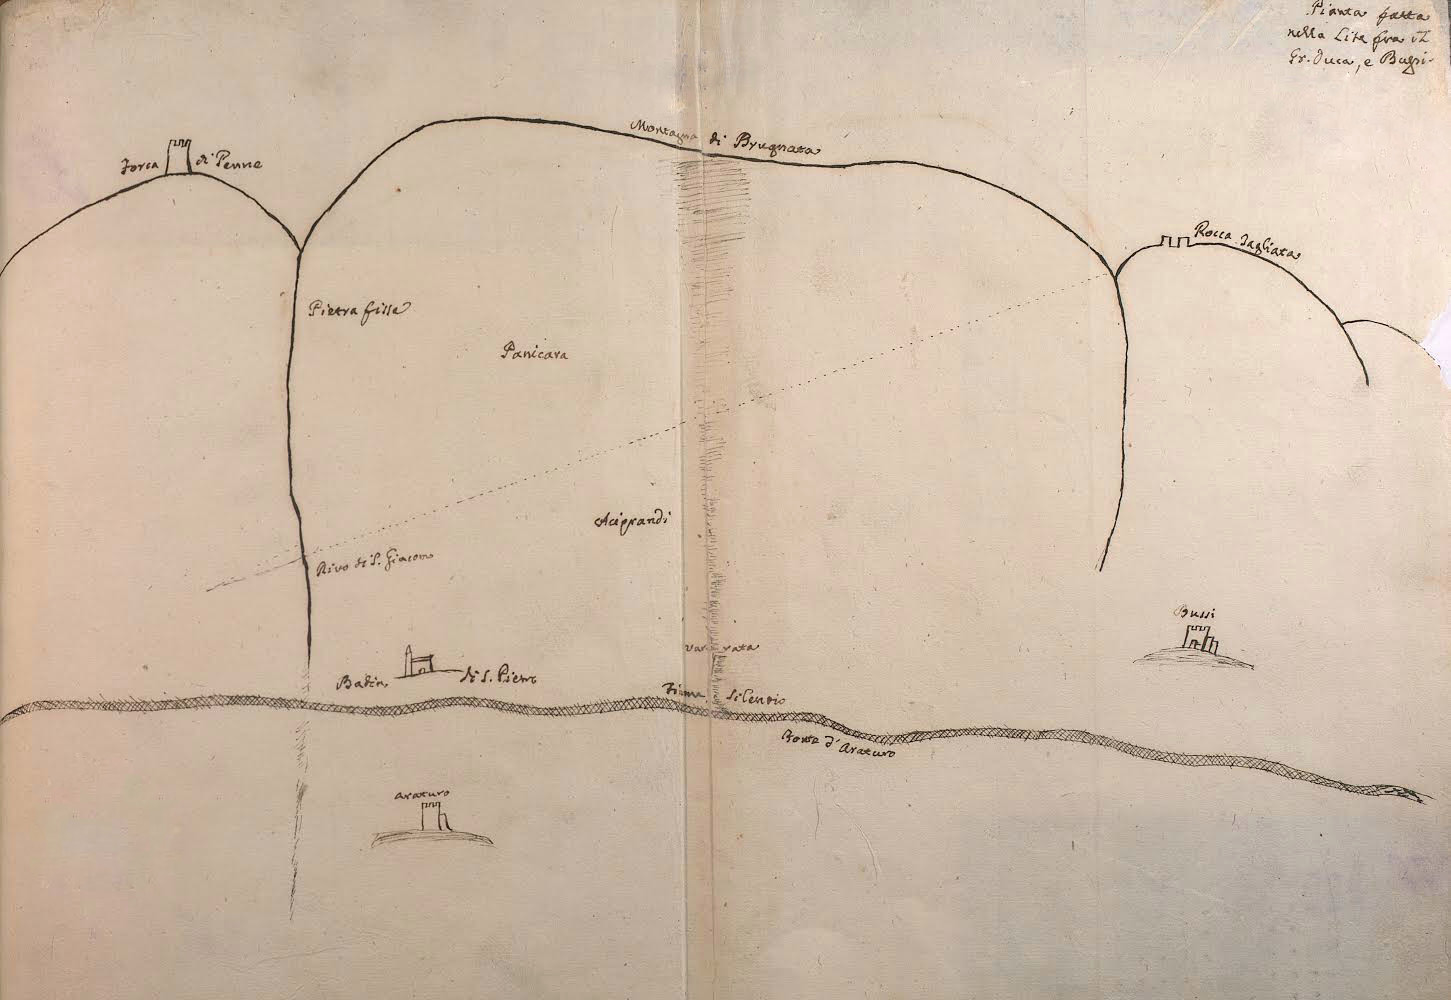 Pianta fatta
nella Lite fra il
Gr. Duca, e Bussi.
Montagna di Brugnara
Forca di Penne
Rocca Tagliata
Pietra fissa
Panicara
Aciprandi
Rivo di S. Giacomo
Bussi
Badia di S. Pietro
Fiume Silentio
Ponte d'Araturo
Araturo